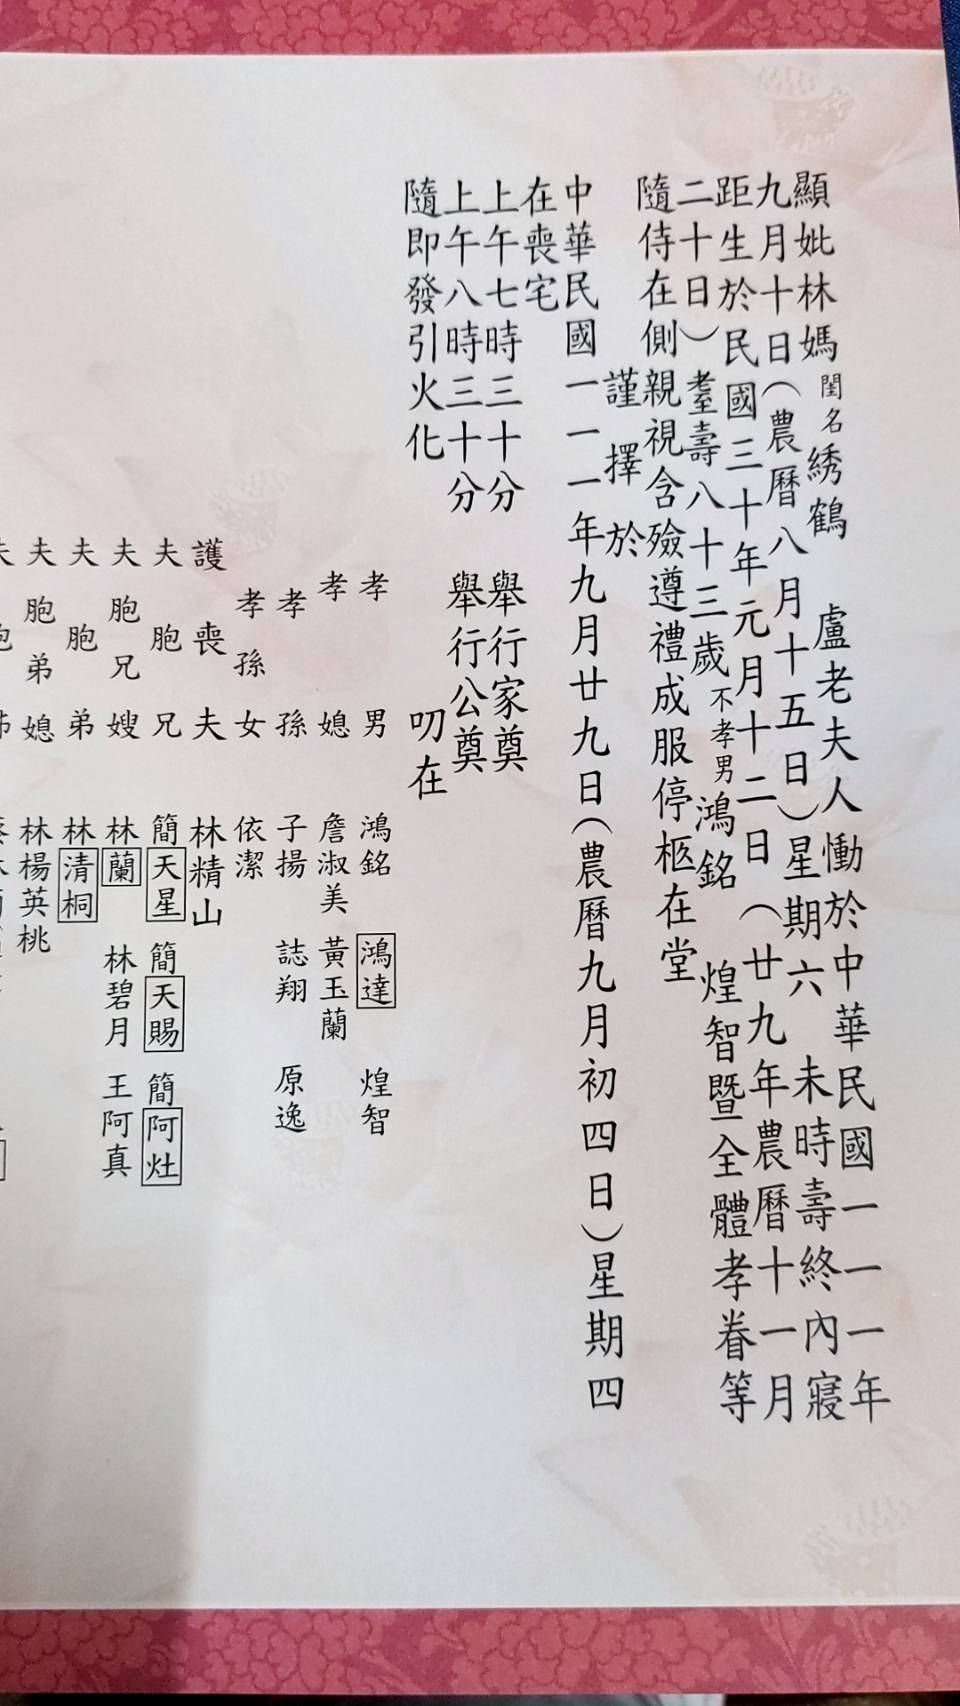 顯妣林媽閨名綉鶴 盧老夫人慟於中華民國一一一年
九月十日（農曆八月十五日）星期六 未時壽終內寢
距生於民國三十年元月十二日（廿九年農曆十一月
二十日）耋壽八十三歲不孝男鴻銘 煌智暨全體孝眷等
隨侍在側親視含殮遵禮成服停柩在堂
謹擇於
中華民國一一一年九月廿九日（農曆九月初四日）星期四
在喪宅
上午七時三十分 舉行家奠
上午八時三十分 舉行公奠
隨即發引火化 叨在
孝男 鴻銘 鴻達 煌智
孝媳 詹淑美 黃玉蘭
孝孫 子揚 誌翔 原逸
孝孫女 依潔
護喪夫 林精山
夫胞兄 簡天星 簡天賜 簡阿灶
夫胞兄嫂 林蘭 林碧月 王阿真
夫胞弟 林清桐
夫胞弟媳 林楊英桃